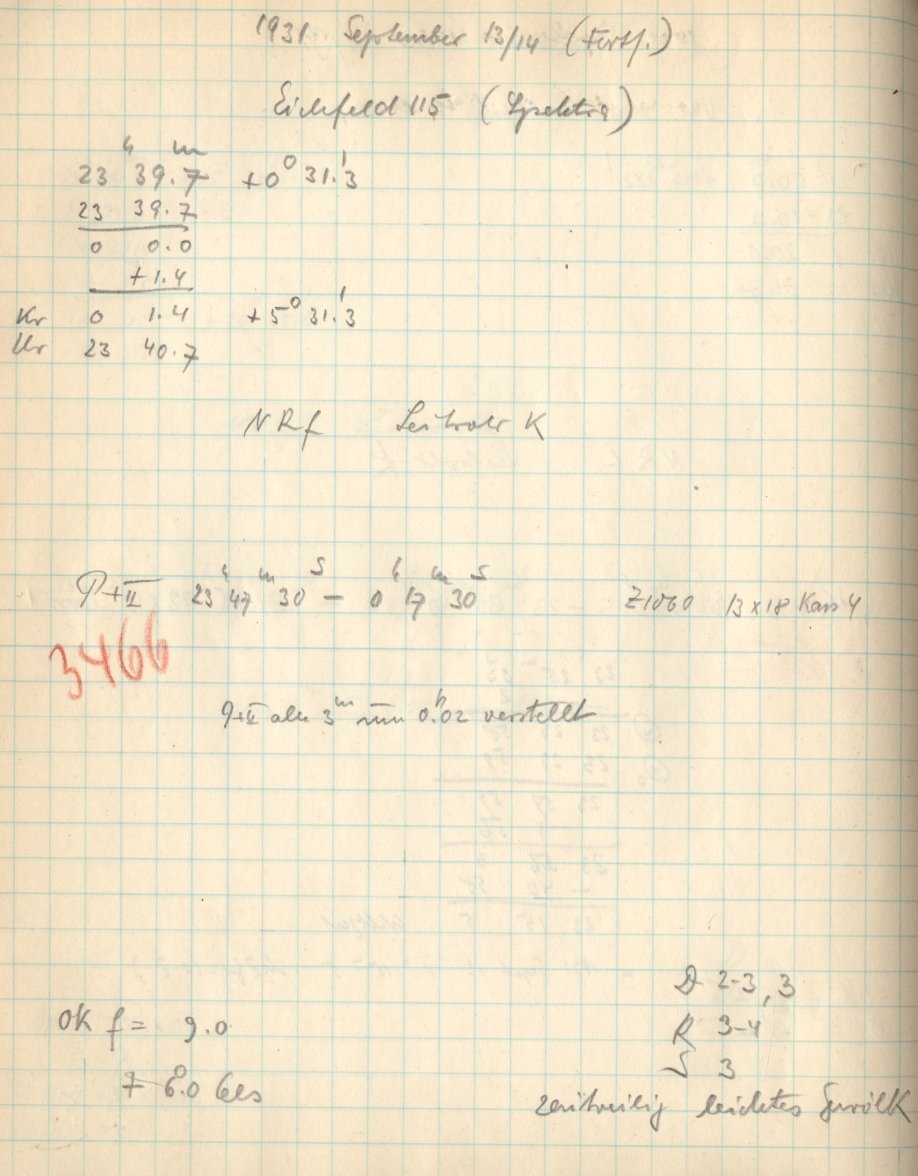 1931 September 13/14 (Forts.)
Eichfeld 115 (Spektra)
h m
23 39.7 +0° 31.'3
23 39.7
0 0.0
+1.4
Kr 0 1.4 +5° 31.'3
Ur 23 40.7
NRf Leitrohr K
P+II 23h 47m 30s – 0h 17m 30s Z1060 13x18 Kass 4
3466
P+II alle 3m um 0.h02 verstellt
D 2-3, 3
OK f = 9.0
R 3-4
S 3
+ 6°.0 Cels
zeitweilig leichtes Gewölk